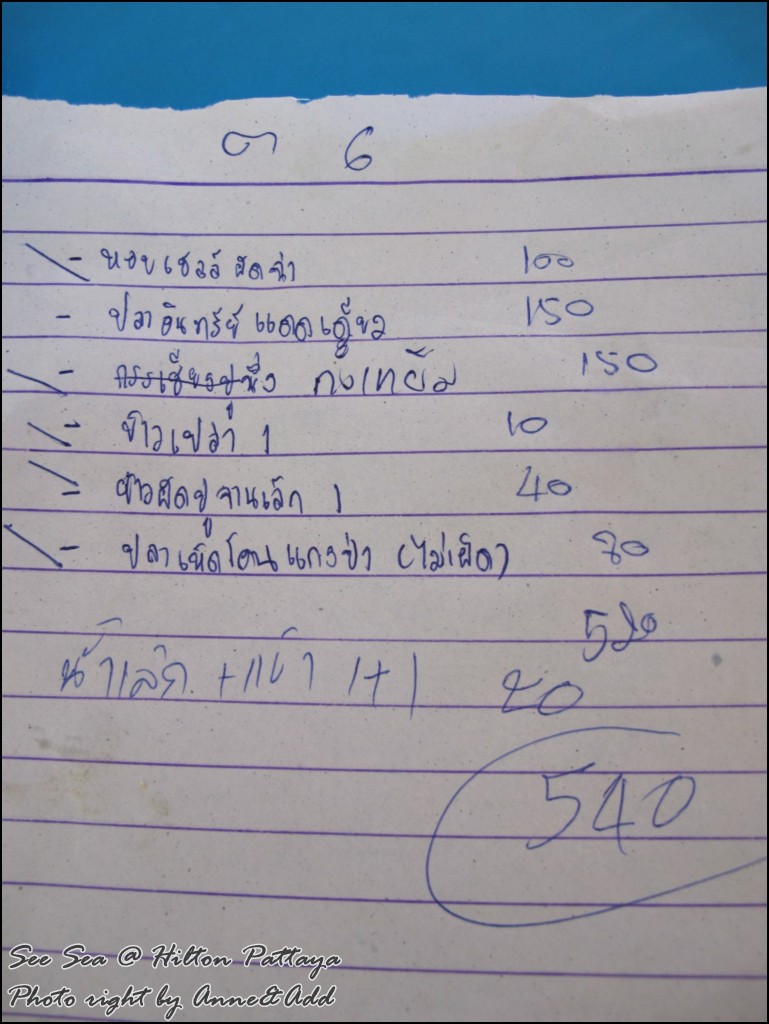 ต 6
- หอยเชลล์ ผัดฉ่า 100
- ปลาอินทรีย์ แดดเดียว 150
- กุ้งเทย์มิ 150
- ข้าวเปล่า 1 10
- ข้าวผัดปูจานเล็ก 1 40
- ปลาเห็ดโคนแกงป่า (ไม่เผ็ด) 70
520
น้ำเล็ก + แข็ง 1+1 20
540
See Sea @ Hilton Pattaya
Photo right by Anne&Add